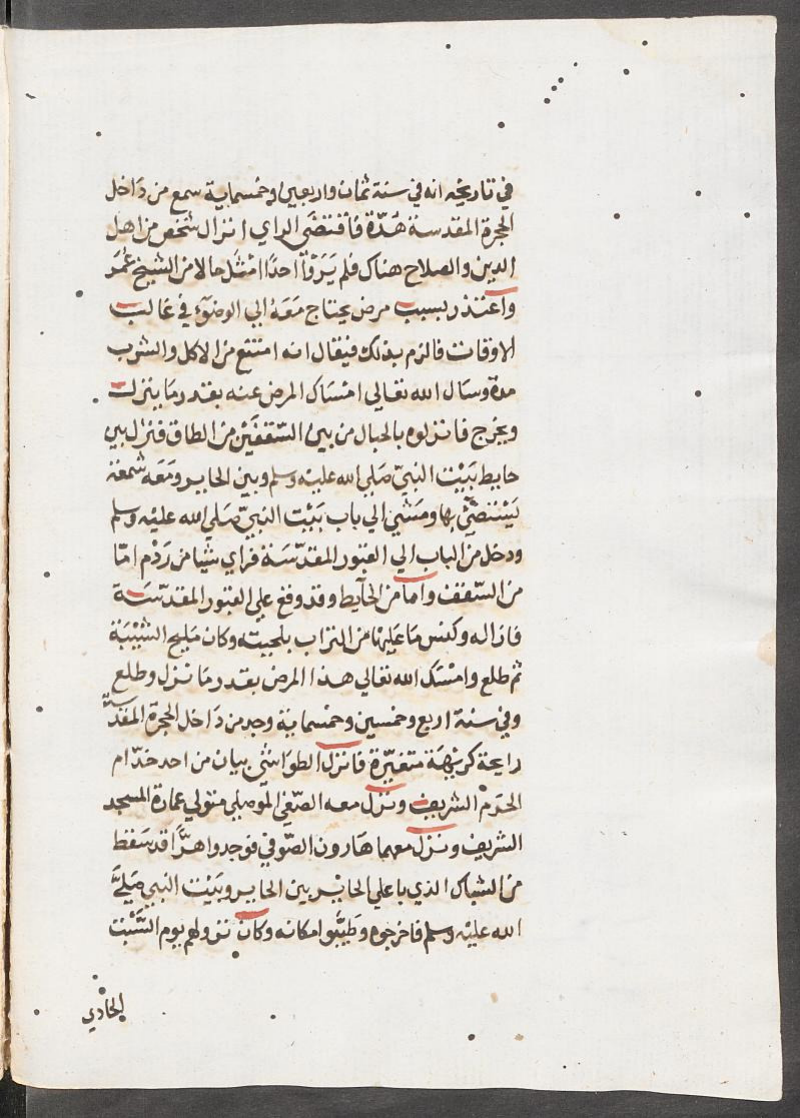 في تاريخه انه في سنة ثمان واربعين وخمسماية سمع من داخل
الحجرة المقدسة هدّة فاقتضي الراي انزال شخص من اهل
الدين والصلاح هناك فلم يروا احدا امثل حالا من الشيخ عُمَر
واعتذر بسبب مرض يحتاج معه الي الوضوء في غالب
الاوقات فالزم بذلك فيقال انه امتنع من الاكل والشرب
مدة وسال الله تعالي امساك المرض عنه بقدر ما ينزل
ويخرج فانزلوه بالحبال من بين السّقفين من الطاق فنزل بين
حايط بيت النبيّ صَلي الله عليه وسلم وبين الحايز ومعه شمعة
يستضيّ بها ومشي الي باب بيت النبيّ صَلي الله عليه وسلم
ودخل من الباب الي القبور المقدّسة فراي شيا من ردم امّا
من السّقف واما من الحايط وقد وقع علي القبور المقدّسَة
فازاله وكنس ما عليها من التراب بلحيته وكان مليح الشيْبَة
ثم طلع وامسَك الله تعالي هذا المرض بقدر ما نزل وطلع
وفي سنة اربع وخمسين وخمسماية وجد من داخل الحجرة المقدّسة
رايحة كريهة متغيّرة فانزل الطواشي بيان من احد خدّام
الحَرَم الشريف ونزل معه الصّفي الموصلي متولي عمارة المسجد
الشريف ونزل معهما هارون الصّوفي فوجدوا هرًّا قد سَقط
من الشباك الذي باعلي الحايز بين الحايز وبيت النبي صَلي
الله عليه وسلم فاخرجوه وطيّبوا مكانه وكان نزولهم يوم السَّبْت
الحادي